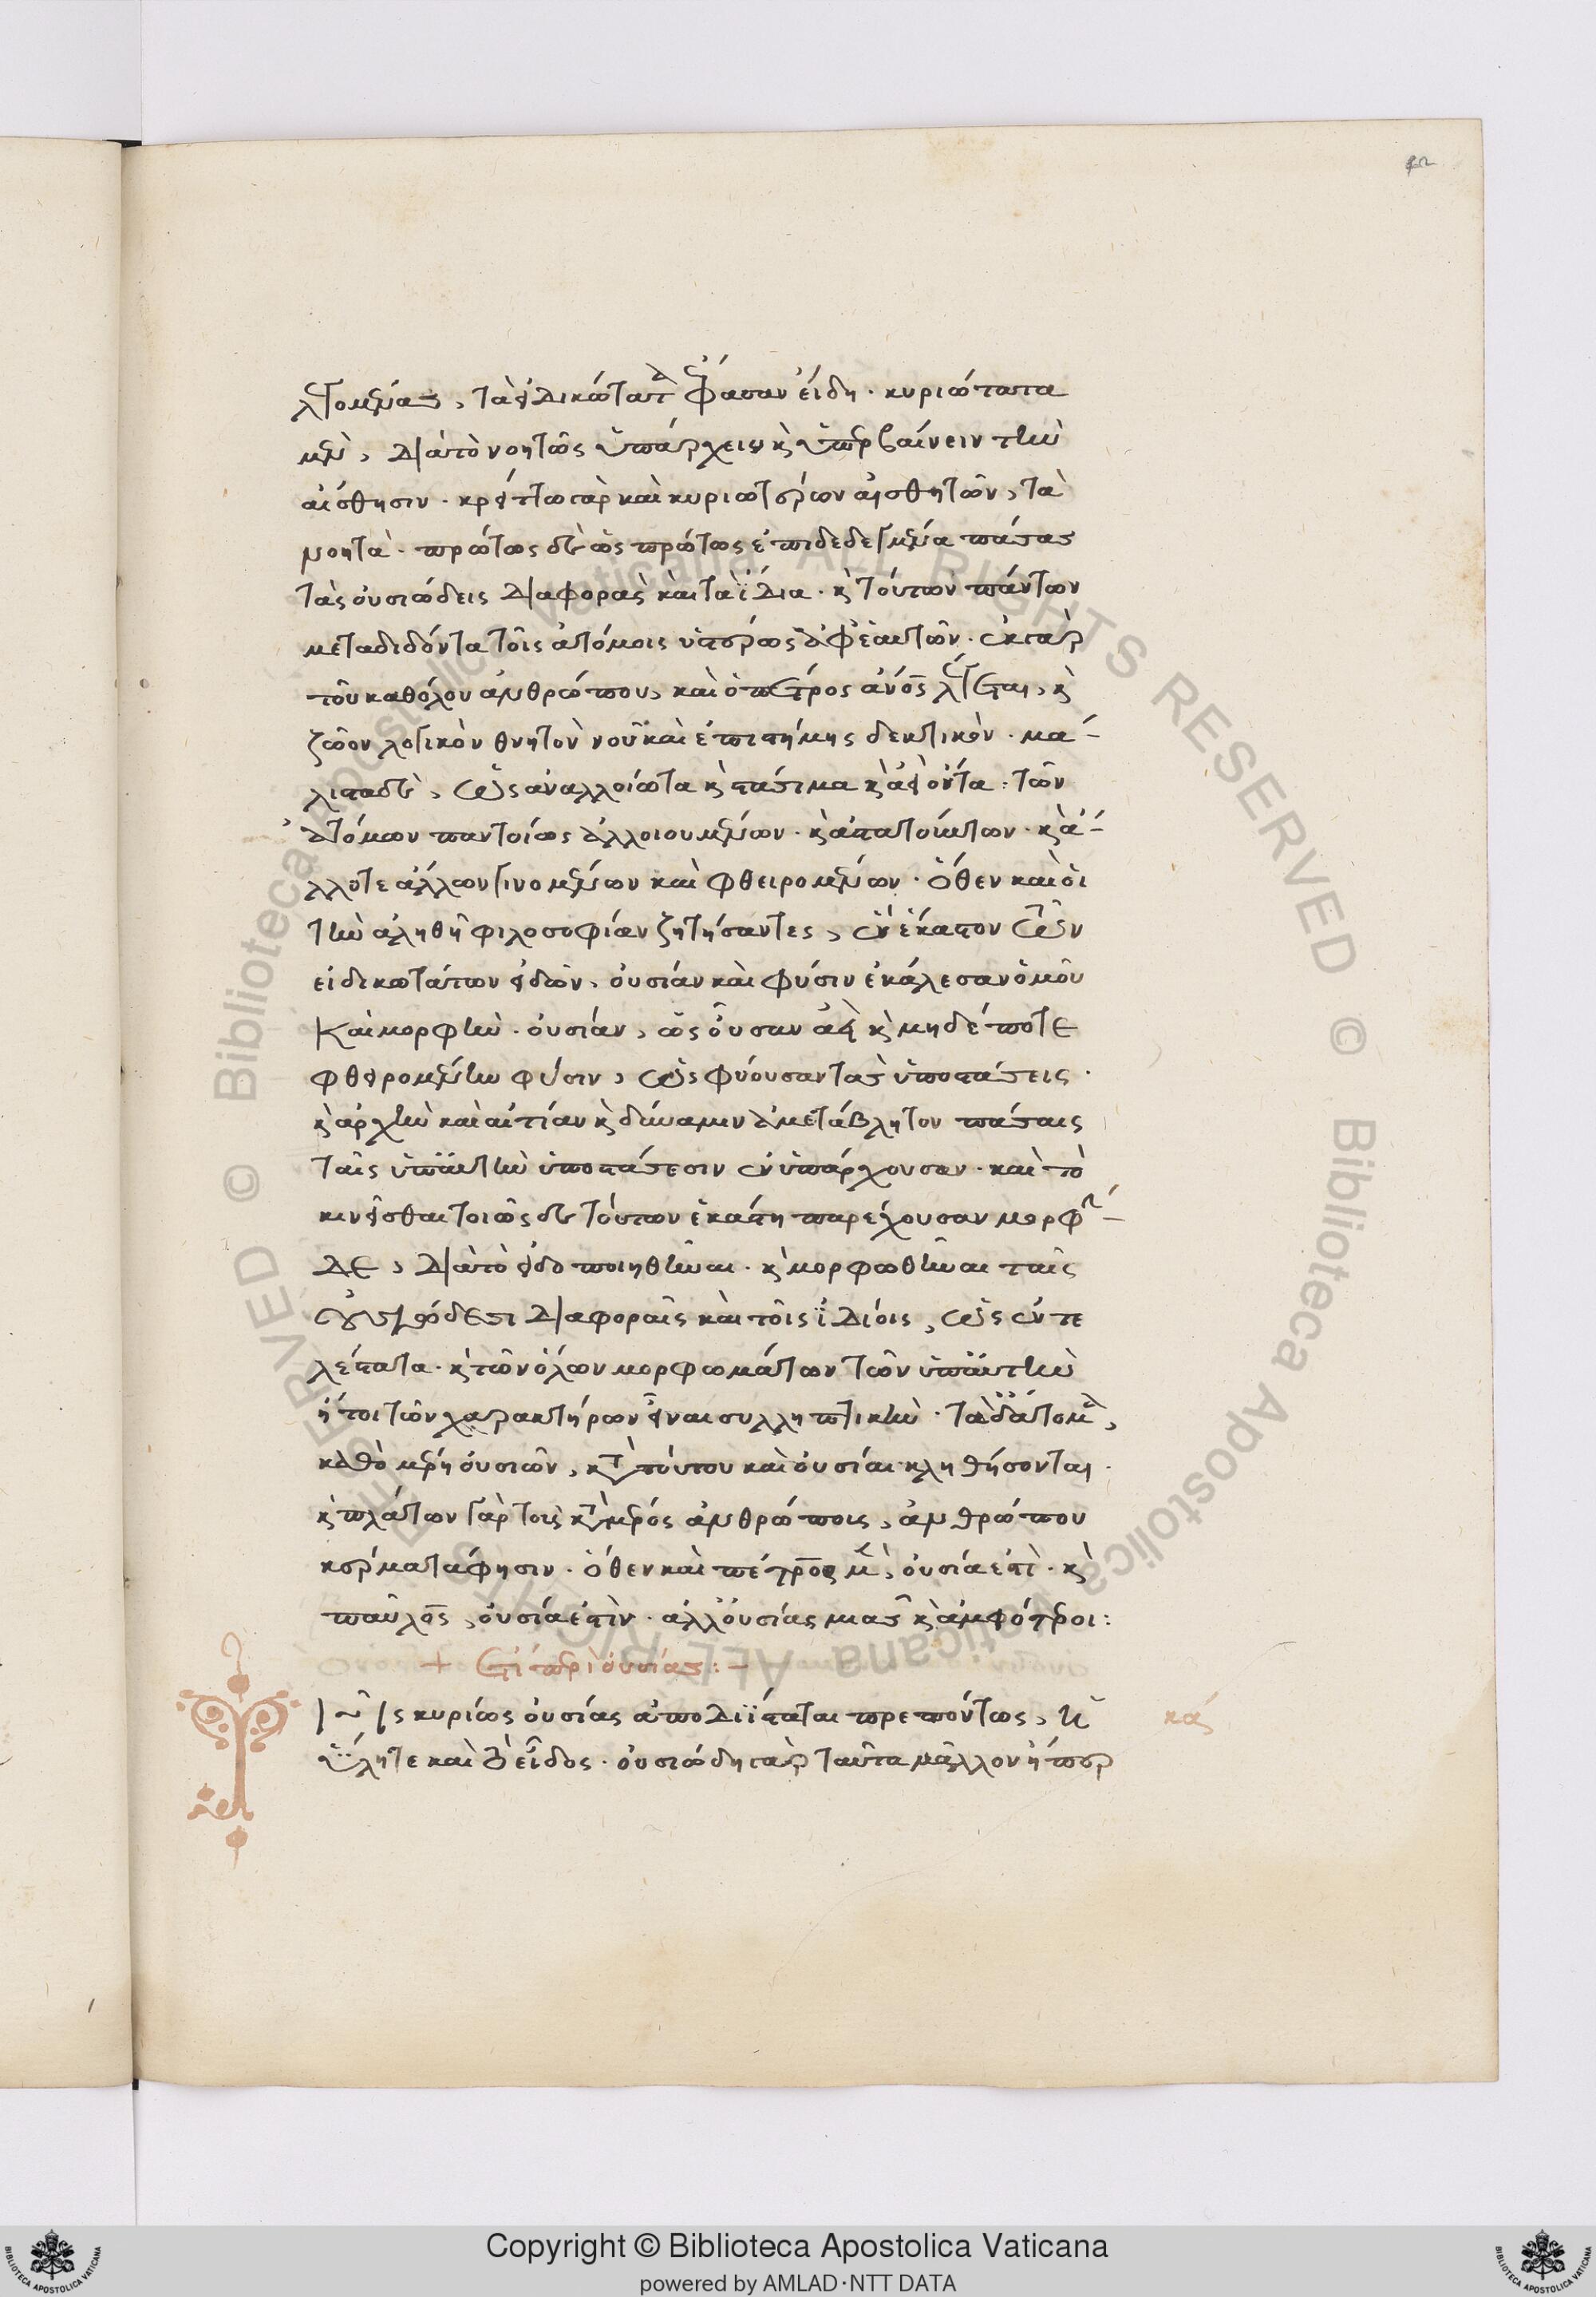 λεγομένας, τὰ εἰδικώτατα ἔφασαν εἴδη · κυριώτατα
μὲν, διὰ τὸ νοητῶς ὑπάρχειν καὶ ὑπερβαίνειν τὴν
αἴσθησιν · κρείττω γὰρ καὶ κυριώτερα τῶν αἰσθητῶν, τὰ
νοητά · πρώτως δὲ ὡς πρώτως ἐπιδεδεγμένα πάσας
τὰς οὐσιώδεις διαφορὰς καὶ τὰ ἴδια · καὶ τούτων πάντων
μεταδιδόντα τοῖς ἀτόμοις ὑστέρως ἀφ' ἑαυτῶν · ἐκ γὰρ
τοῦ καθόλου ἀνθρώπου, καὶ ὁ Πέτρος ἄνος λέγεται, καὶ
ζῶον λογικὸν θνητὸν νοῦ καὶ ἐπιστήμης δεκτικόν · μά-
λιστα δὲ, ὡς ἀναλλοίωτα καὶ στάσιμα καὶ ἀεὶ ὄντα : τῶν
ἀτόμων παντοίως ἀλλοιουμένων · καὶ ἀστατούντων · καὶ ἄ-
λλοτε ἄλλων γινομένων καὶ φθειρομένων · ὅθεν καὶ οἱ
τὴν ἀληθῆ φιλοσοφίαν ζητήσαντες, ἓν ἕκαστον τῶν
εἰδικωτάτων εἰδῶν, οὐσίαν καὶ φύσιν ἐκάλεσαν ὁμοῦ
καὶ μορφήν · οὐσίαν, ὡς οὖσαν ἀεὶ καὶ μηδέποτε
φθειρομένην φύσιν, ὡς φύουσαν τὰς ὑποστάσεις ·
καὶ ἀρχὴν καὶ αἰτίαν καὶ δύναμιν ἀμετάβλητον πάσαις
ταῖς ὑπ' αὐτὴν ὑποστάσεσιν ἐνυπάρχουσαν · καὶ τὸ
κινεῖσθαι τοιῶσδε τούτων ἑκάστῃ παρέχουσαν μορφὴν
δὲ, διὰ τὸ εἰδοποιηθῆναι · καὶ μορφωθῆναι ταῖς
οὐσιώδεσι διαφοραῖς καὶ τοῖς ἰδίοις, ὡς ἐντε
λέστατα · καὶ τῶν ὅλων μορφωμάτων τῶν ὑπ' αὐτὴν
ἤτοι τῶν χαρακτήρων εἶναι συλληπτικήν · τὰ δ' ἄτομα,
καθὸ μέρη οὐσιῶν, κατὰ τούτου καὶ οὐσίαι κληθήσονται ·
καὶ Πλάτων γὰρ τοὺς κατὰ μέρος ἀνθρώποις, ἀνθρώπου
κερματά φησιν · ὅθεν καὶ Πέτρος μὲν, οὐσία ἐστὶ · καὶ
Παῦλος, οὐσία ἐστὶν · ἀλλ' οὐσίας μιᾶς καὶ ἀμφότεροι :
+ ἔτι περὶ οὐσίας : –
Τῆς κυρίως οὐσίας ἀποδιΐσταται πρεπόντως, ἡ κά
ὕλη τε καὶ τὸ εἶδος · οὐσιώδη γὰρ ταῦτα μᾶλλον ἤπερ